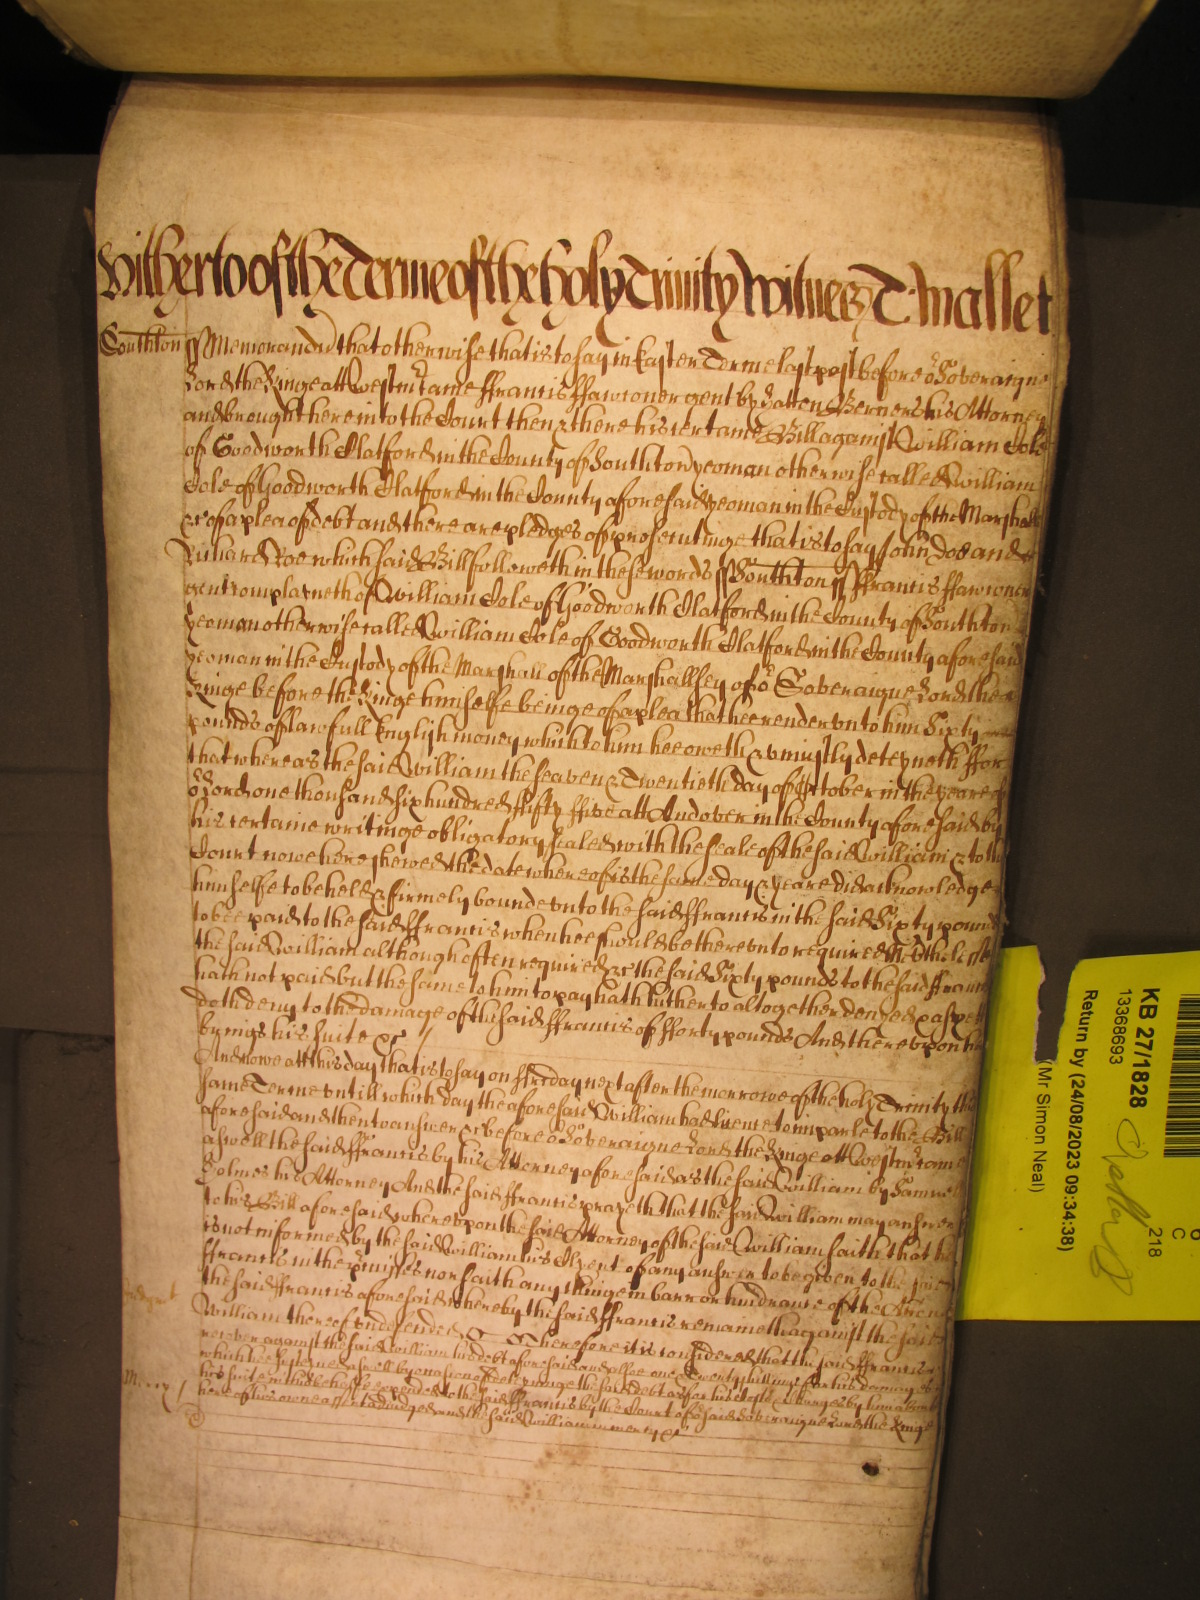 Hitherto of the Terme of the holy Trinity Witnes T. Mallet
Southton ss Memorand that otherwise that is to say in Easter Terme last past before or Soveraigne
Lord the Kinge att Westmr came ffrancis ffawconer gent by Hatten Berners his Attorney
and brought here into the Court then & there his certaine Bill against William Cole
of Goodworth Clatford in the County of Southton yeoman otherwise called William
Cole of Goodworth Clatford in the County aforesaid yeoman in the Custody of the Marshall
&c of a plea of debt and there are pledges of prosecutinge that is to say John Doe and
Richard Roe which said Bill followeth in these words ss Southton ss ffrancis ffawconer
gent complayneth of William Cole of Goodworth Clatford in the County of Southton
yeoman otherwise called William Cole of Goodworth Clatford in the County aforesaid
yeoman in the Custody of the Marshall of the Marshallsey of or Soveraigne Lord the
Kinge before the Kinge himselfe beinge of a plea that hee render unto him Sixty
pounds of lawfull English money which to him hee oweth & uniustly deteyneth ffor
that whereas the said William the seaven & Twentieth day of October in the yeare of
or Lord one thousand six hundred ffifty ffive att Andover in the County aforesaid by
his certaine writinge obligatory sealed with the seale of the said William & to the
Court nowe here shewed the date whereof is the same day & yeare did acknowledge
himselfe to be held & firmely bounde unto the said ffrancis in the said Sixty pounds
to bee paid to the said ffrancis when hee should be thereunto required Neverthelesse
the said William although often required &c the said Sixty pounds to the said ffrancis
hath not paid but the same to him to pay hath hitherto altogether denyed & as yet
doth deny to the damage of the said ffrancis of fforty pounds And thereupon hee
brings his suite &c
And nowe att this day that is to say on ffryday next after the morrowe of the holy Trinity this
same Terme untill which day the aforesaid William had licence to imparle to the Bill
aforesaid and then to answer &c before or Soveraigne Lord the Kinge att Westmr came
aswell the said ffrancis by his Attorney aforesaid as the said William by Samuel
Holmes his Attorney And the said ffrancis prayeth that the said William may answer
to his Bill aforesaid whereupon the said Attorney of the said William saith that he
is not informed by the said William his Clyent of any answer to be given to the said
ffrancis in the pmisses nor saith any thinge in barr or hindrance of the Accon
Judgmt
the said ffrancis aforesaid whereby the said ffrancis remaineth against the said
William thereof undefended &c Therefore it is considered that the said ffrancis
recover against the said William his debt aforesaid and allsoe one Twenty shillings for his damages
which hee susteyned aswell by occasion of deteyninge the said debt as for his costs & charges by him about
his suite in this behalfe expended to the said ffrancis by the Court of or said Soveraigne Lord the Kinge
Mercy
here of his owne assent adiudged And the said William in mercy &c
KB 27/1828
13368693
Return by (24/08/2023 09:34:38)
(Mr Simon Neal)
218
C